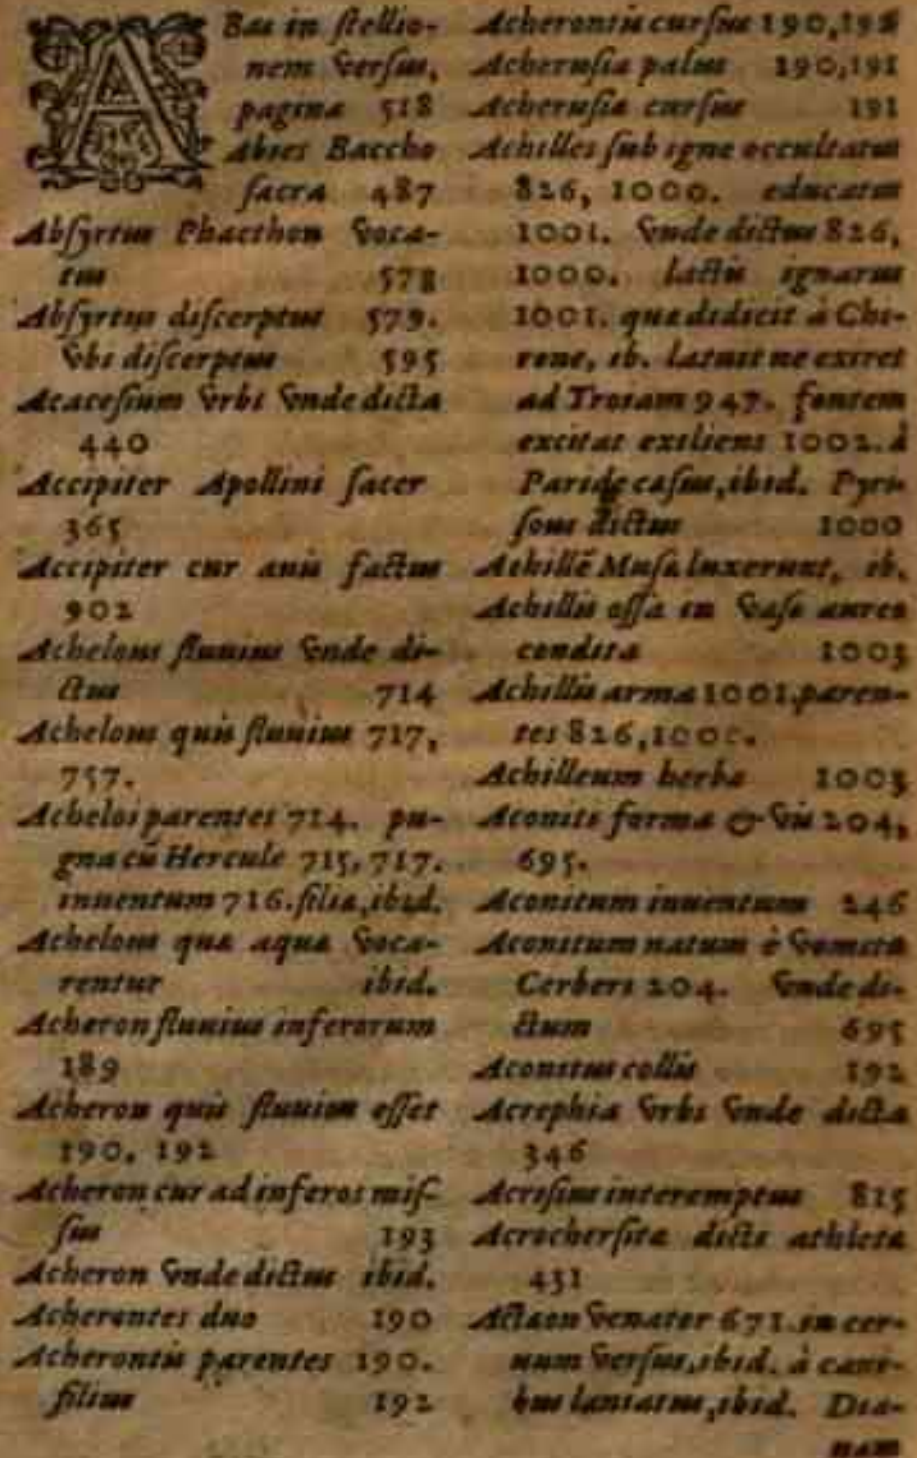 ABas in stellio-
nem versus,
pagina 518
Abies Baccho
sacra 487
Absyrtus Phaethon voca-
tus 578
Absyrtus discerptus 579.
vbi discerptus 595
Acacesium vrbs vnde dicta
440
Accipiter Apollini sacer
365
Accipiter cur auis factus
902
Achelous fluuius vnde di-
ctus 714
Achelous quis fluuius 717,
757.
Acheloi parentes 714. pu-
gna cũ Hercule 715, 717.
inuentum 716. filiæ, ibid.
Achelous quæ aquæ voca-
rentur ibid.
Acheron fluuius inferorum
189
Acheron quis fluuius esset
190. 192
Acheron cur ad inferos mis-
sus 193
Acheron vnde dictus ibid.
Acherontes duo 190
Acherontis parentes 190.
filius 192
Acherontis cursus 190,192
Acherusia palus 190,191
Acherusiæ cursus 191
Achilles sub igne occultatus
826, 1000. educatus
1001. vnde dictus 826,
1000. lactis ignarus
1001. quæ didicit à Chi-
rone, ib. latuit ne exiret
ad Troiam 947. fontem
excitat exiliens 1002. à
Paride cæsus, ibid. Pyri-
sous dictus 1000
Achillẽ Musæ luxerunt, ib.
Achillis ossa in vase aureo
condita 1003
Achillis arma 1001. paren-
tes 826, 1000.
Achilleum herba 1003
Aconiti forma & vis 204,
695.
Aconitum inuentum 246
Aconitum natum è vomitu
Cerberi 204. vnde di-
ctum 695
Aconitus collis 192
Acrephia vrbs vnde dicta
346
Acrisius interemptus 815
Acrochersitæ dicti athletæ
431
Actæon venator 671. in cer-
uum versus, ibid. à cani-
bus laniatus, ibid. Dia-
nam